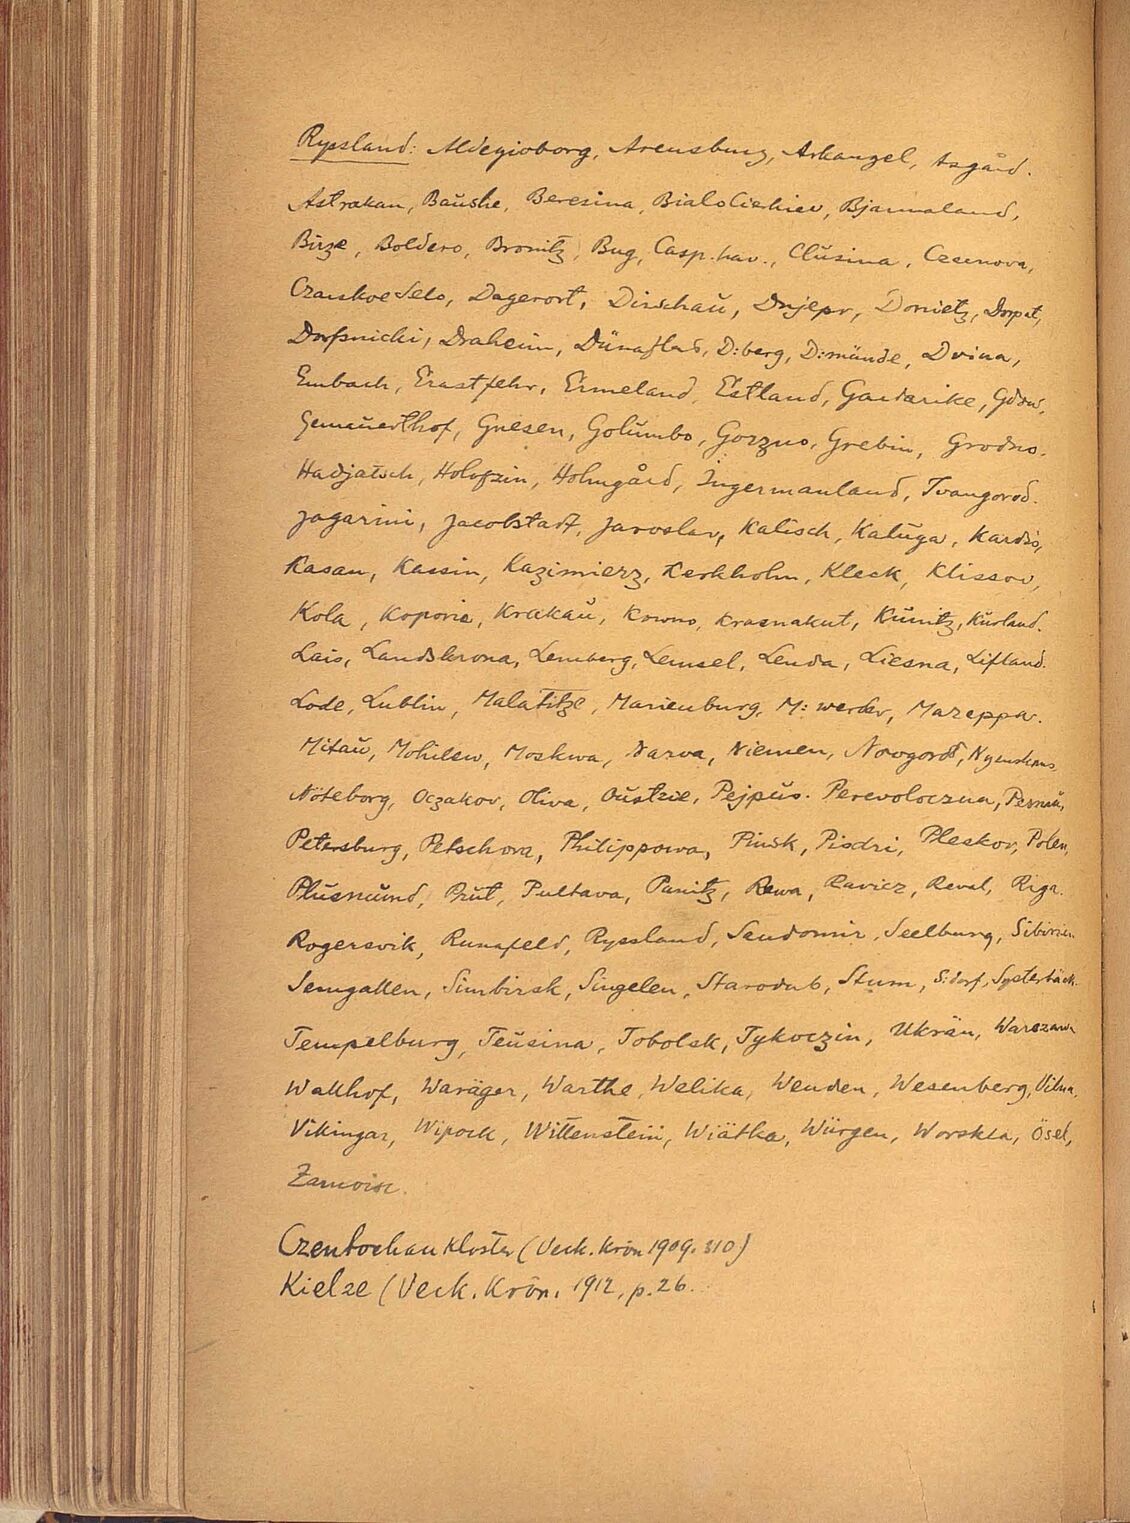 Ryssland: Aldegioborg, Arensburg, Arkangel, Asgård.
Astrakan, Bauske, Beresina, Bialo Cerkiev, Bjarmaland,
Birze, Boldero, Bronitz, Bug, Casp. hav., Clusina, Czernova,
Czarskoe Selo, Dagerort, Dirschau, Dnjepr, Donietz, Dorpat,
Dorfsnicki, Draheim, Dünaflod, D:berg, D:münde, Dvina,
Embach, Erastfehr, Ermeland, Estland, Gardarike, Gdov,
Gemauerthof, Gnesen, Golumbo, Gorzno, Grebin, Grodno.
Hadjatsch, Holofzin, Holmgård, Ingermanland, Ivangorod.
Jagarini, Jacobstadt, Jaroslav, Kalisch, Kaluga, Kardis,
Kasan, Kassin, Kazimierz, Kerkholm, Kleck, Klissov,
Kola, Koporie, Krakau, Kowno, Krasnakut, Kunitz, Kurland.
Lais, Landskrona, Lemberg, Lemsel, Lenda, Liesna, Lifland.
Lode, Lublin, Malatitze, Marienburg, M: werder, Mazeppa.
Mitau, Mohilew, Moskwa, Narva, Niemen, Novgorod, Nyenskans
Nöteborg, Oczakov, Oliva, Oustzie, Pejpus. Perevoloczna, Pernau,
Petersburg, Petschora, Philippowa, Pinsk, Pisdri, Pleskov, Polen,
Plusmund, Prut, Pultava, Punitz, Rewa, Ravicz, Reval, Riga.
Rogersvik, Runafeld, Ryssland, Sendomir, Seelburg, Sibirien
Semgallen, Simbirsk, Singelen, Starodub, Stum, S:dorf, Systerbäck.
Tempelburg, Teusina, Tobolsk, Tykoczin, Ukrän, Warszawa
Wallhof, Waräger, Warthe, Welika, Wenden, Wesenberg, Vilna,
Vikingar, Wipock, Wittenstein, Wiätka, Würgen, Worskla, Ösel,
Zamoisc.
Czentochau Kloster (Veck. Krön 1909. 310)
Kielze (Veck. Krön. 1912, p. 26.